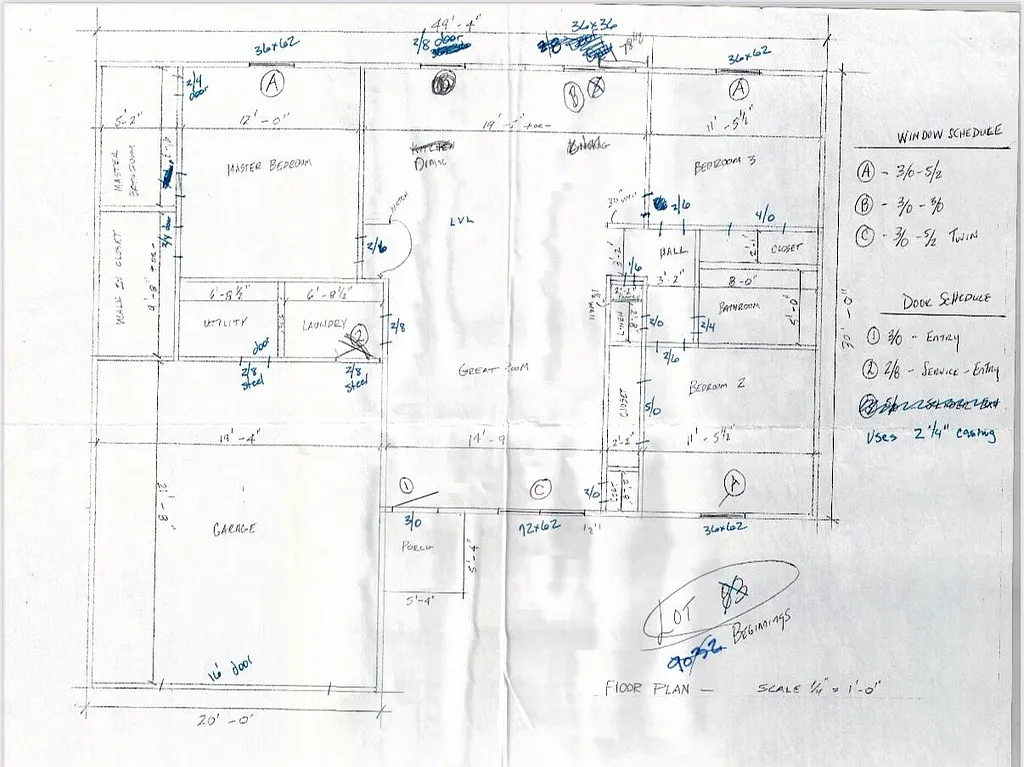 49'-4"
36x62
2/8 door
36x36
36x62
A
B
A
2/4 door
5'-2"
12'-0"
11'-5½"
MASTER BATHROOM
MASTER BEDROOM
KITCHEN
DINING
BEDROOM 3
WINDOW SCHEDULE
A - 3/0-5/2
B - 3/0-3/0
C - 3/0-5/2 TWIN
LVL
2/6
2/6
4/0
HALL
CLOSET
WALK IN CLOSET
9'-8" +or-
1/6
3'-2"
8'-0"
6'-8½"
6'-8½"
UTILITY
LAUNDRY
2
2/8
BATHROOM
5'-0"
2/0
2/4
2/6
30'-0"
DOOR SCHEDULE
1 3/0 - ENTRY
2 2/8 - SERVICE-ENTRY
Uses 2 1/4" casing
door
2/8 steel
2/8 steel
GREAT ROOM
BEDROOM 2
CLOSET
5/0
19'-4"
14'-9
2'-2"
11'-5½"
21'-8"
1
C
2/0
A
3/0
72x62
36x62
GARAGE
PORCH
5'-4"
5'-4"
LOT
BEGINNINGS
16' door
FLOOR PLAN - SCALE ¼" = 1'-0"
20'-0"